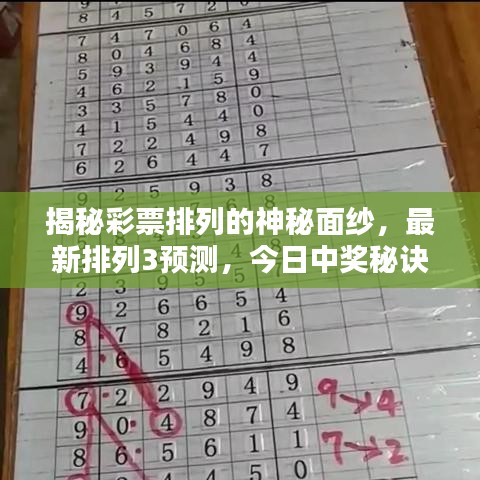 7 4 7 0 6 4
8 0 4 6 6 4
5 9 3 9 4 4
4 6 2 1 5 9
3 3 5 7 8 0
4 1 5 4 4 0
7 2 2 4 9 8
6 2 6 4 4 7
2 5 9 3 8
揭秘彩票排列的神秘面纱，最
新排列3预测，今日中奖秘诀
9 2 6 6 5 4
8 7 8 2 1 6
4 6 5 4 9 8
7 2 2 9 4 9 9→4
9 0 4 8 7 4
8 6 5 6 1 1 7→2
4 5 0